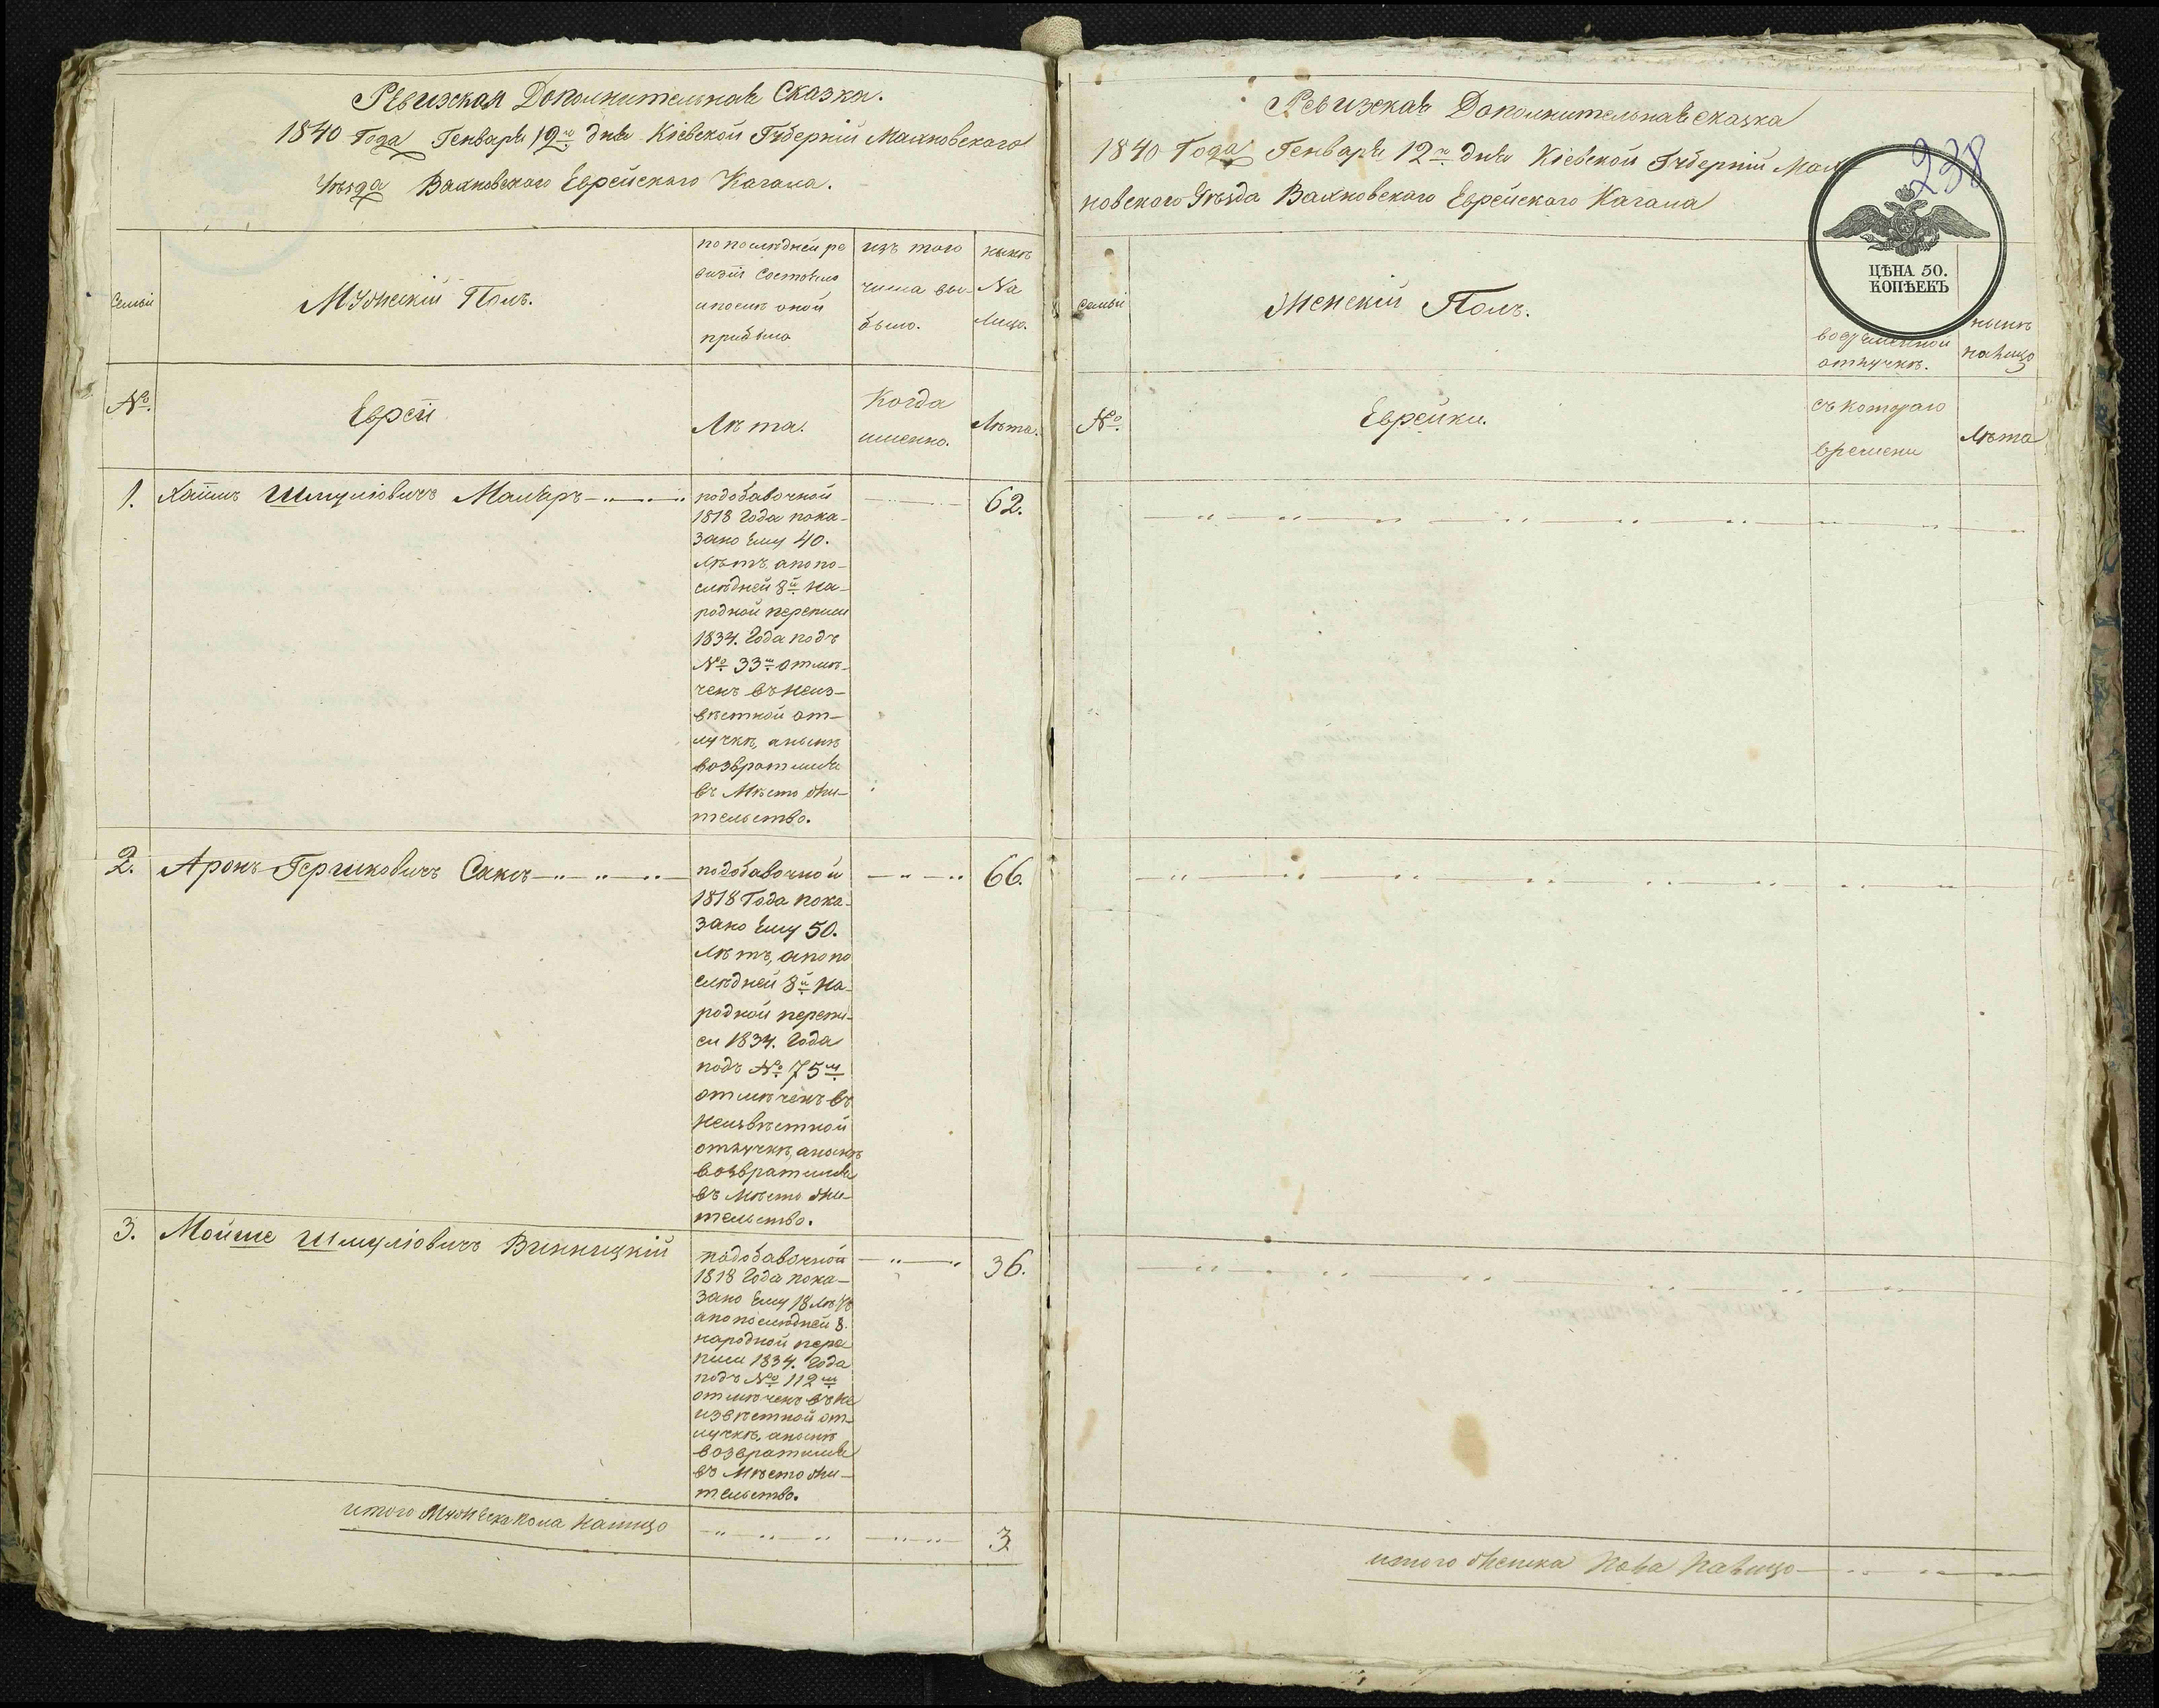 Ревизская Дополнительная Сказка.
1840 Года Генваря 12го дня Кіевской Губерніи Махновскаго
Уѣзда Вахновскаго Еврейскаго Кагала.
Семьи
Мужескій Полъ.
по послѣдней ре
визіи состояло
и послѣ оной
прибыло
изъ того
числа вы-
было.
нынѣ
На
Лицо.
№.
Евреи
Лѣта.
Когда
именно.
Лѣта.
1. Хаимъ Шмуліовичъ Маляръ
по добавочной
1818 Года пока-
зано Ему 40.
Лѣтъ, а по по-
слѣдней 8й На-
родной переписи
1834. Года подъ
№ 33м отмѣ-
ченъ въ неиз-
вѣстной от-
лучкѣ, а нынѣ
возвратился
въ Мѣсто жи-
тельство.
62.
2. Аронъ Гершковичъ Сакъ
по добавочной
1818 Года пока-
зано Ему 50.
Лѣтъ, а по по
слѣдней 8й На-
родной перепи-
си 1834. Года
подъ № 75м
отмѣченъ въ
неизвѣстной
отлучкѣ, а нынѣ
возвратился
въ Мѣсто жи-
тельство.
66.
3. Мойше Шмуліовичъ Винницкій
по добавочной
1818 Года пока-
зано Ему 18 Лѣтъ
а по послѣдней 8.
народной пере
писи 1834. Года
подъ № 112м
отмѣченъ въ не
извѣстной от-
лучкѣ, а нынѣ
возвратился
въ Мѣсто жи-
тельство.
36.
итого Мужеска пола на лицо
3
Ревизская Дополнительная сказка
1840 Года Генваря 12го дня Кіевской Губерніи Мах-
новскаго Уѣзда Вахновскаго Еврейскаго Кагала
238
ЦѢНА 50.
КОПѢЕКЪ
Семьи
Женскій Полъ.
во временной
отлучкѣ.
нынѣ
на лицо
№.
Еврейки.
съ котораго
времени
Лѣта
итого женска пола на лицо